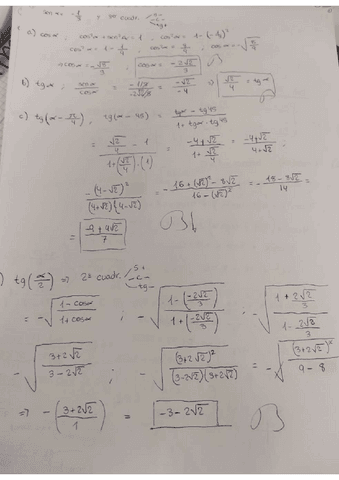 sen α = -1/3 , 3er cuadr.
a) cosα ; cos²α + sen²α = 1 ; cos²α = 1 - (-1/3)²
cos²α = 1 - 1/9 ; cos²α = 8/9 ; cosα = -√(8/9)
cosα = -√8/3 ; cosα = -2√2/3 B
b) tgα ; senα/cosα = (-1/3)/(-2√2/3) = -√2/-4 ⇒ √2/4 = tgα
c) tg(α - π/4) ; tg(α - 45) = (tgα - tg45)/(1 + tgα · tg45)
= (√2/4 - 1)/(1 + (√2/4)·(1)) = (-4+√2)/(1+√2/4) = (-4+√2)/(4+√2) ;
-(4-√2)²/((4+√2)(4-√2)) = -(16+(√2)²-8√2)/(16-(√2)²) = -(18-8√2)/14 =
= (-9+4√2)/7 B
) tg(α/2) ⇒ 2º cuadr. s+ c- tg-
= -√((1-cosα)/(1+cosα)) ; -√((1-(-2√2/3))/(1+(-2√2/3))) ; -√((1+2√2/3)/(1-2√2/3))
-√((3+2√2)/(3-2√2)) ; -√((3+2√2)²/((3-2√2)(3+2√2))) = -√((3+2√2)²/(9-8))
⇒ -((3+2√2)/1) = -3-2√2 B